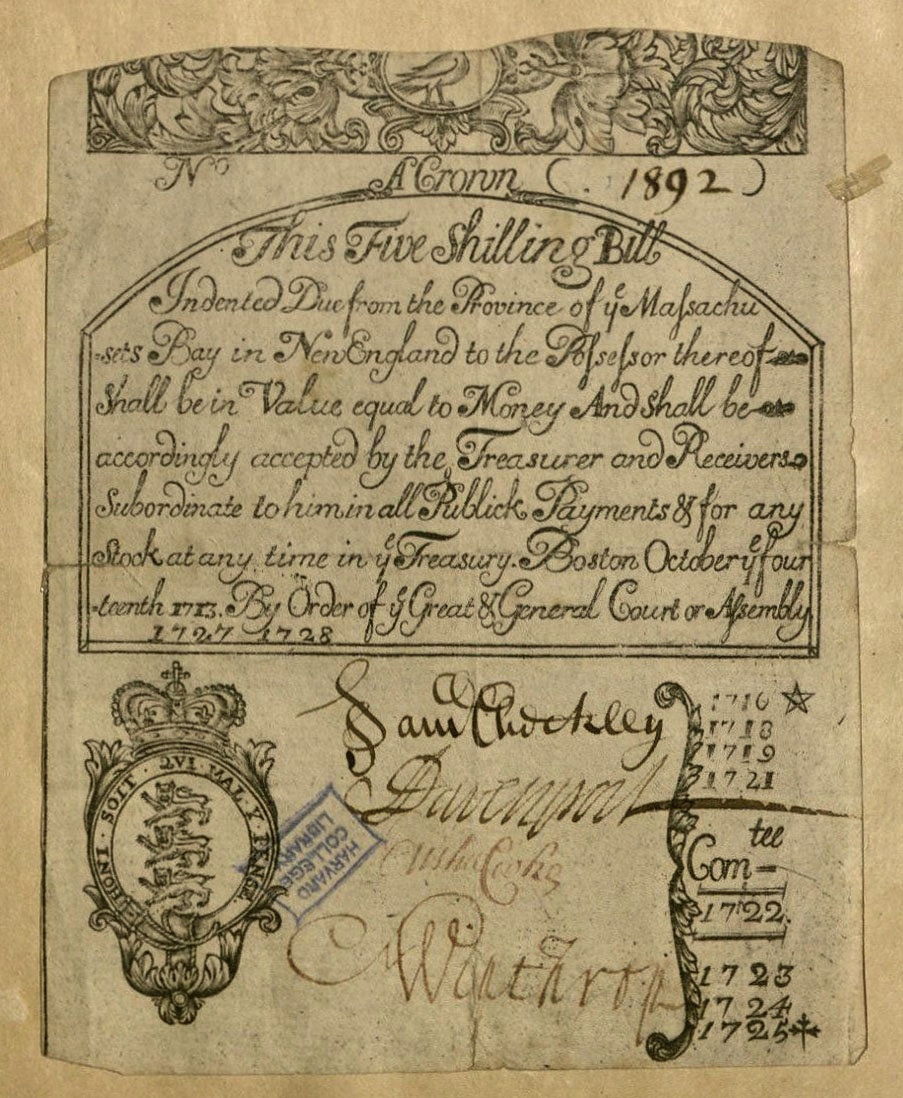 No A Crown ( . 1892 )
This Five Shilling Bill
Indented Due from the Province of yͤ Maſsachu
-sets Bay in New England to the Poſseſsor thereof
Shall be in Value equal to Money And Shall be
accordingly accepted by the Treasurer and Receivers
Subordinate to him in all Publick Payments & for any
Stock at any time in yͤ Treasury. Boston October yͤ four
-teenth 1713. By Order of yͤ Great & General Court or Aſsembly
1727 1728
HONI · SOIT · QVI MAL Y PENSE
Sam Checkley
Davenport
Winthrop
HARVARD
COLLEGE
LIBRARY
1716
1718
1719
1721
Comtee
1722.
1723
1724
1725